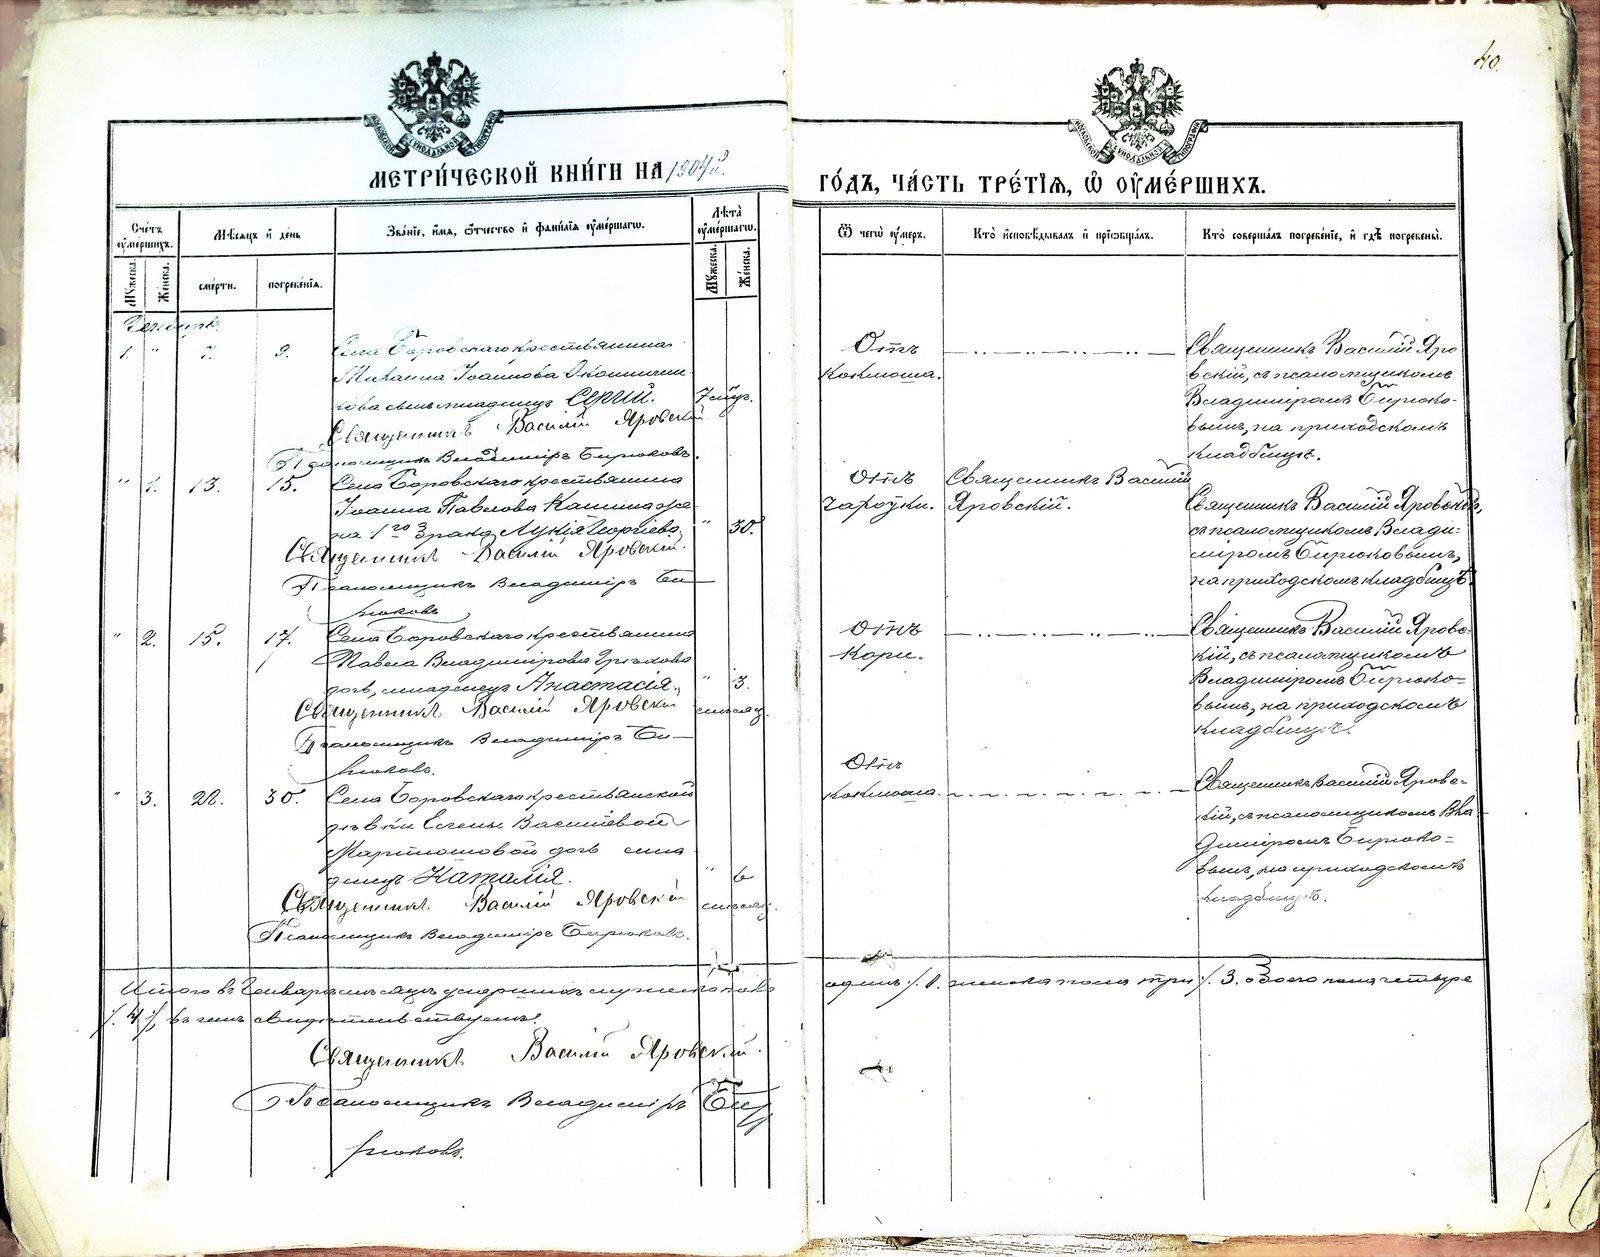 40.
МОСКОВСКОЙ СѴНОДАЛЬНОЙ ТИПОГРАФІИ
МОСКОВСКОЙ СѴНОДАЛЬНОЙ ТИПОГРАФІИ
МЕТРИ́ЧЕСКОЙ КНИ́ГИ НА 1904й.
ГО́ДЪ, ЧА́СТЬ ТРЕ́ТІѦ, Ѡ҆ ОУ҆МЕ́РШИХЪ.
Сче́тъ оу҆ме́ршихъ.
Мѣ́сѧцъ и҆ де́нь
Зва́нїе, и҆́мѧ, ѻ҆́тчество и҆ фами́лїѧ оу҆ме́ршагѡ.
Лѣ́та оу҆ме́ршагѡ.
Ѿ чегѡ̀ оу҆́меръ.
Кто̀ и҆сповѣ́дывалъ и҆ прїѡбща́лъ.
Кто̀ соверша́лъ погребе́нїе, и҆ гдѣ̀ погребены̀.
Мꙋ́жеска.
Же́нска.
сме́рти.
погребе́нїѧ.
Мꙋ́жеска.
Же́нска.
Генварь.
1. " 7. 9. Села Боровскаго крестьянина
Михаила Іоаннова
сынъ младенец Сергій. 7
Священникъ Василій Яровскій
Псаломщикъ Владиміръ Бирюковъ.
Отъ
коклюша.
Священникъ Василій Яро
вскій, съ псаломщикомъ
Владиміромъ Бирюко-
вымъ, на приходскомъ
кладбищѣ.
" 1. 13. 15. Села Боровскаго крестьянина
Іоанна Павлова же
на 1го брака Лукія Георгіева. " 30.
Священникъ Василій Яровскій.
Псаломщикъ Владиміръ Би-
рюковъ
Отъ
чахотки.
Священникъ Василій
Яровскій.
Священникъ Василій Яровскій,
съ псаломщикомъ Влади-
міромъ Бирюковымъ,
на приходскомъ кладбищѣ.
" 2. 15. 17. Села Боровскаго крестьянина
Павла Владимірова
дочь, младенец Анастасія. " 3.
Священникъ Василій Яровскій мѣсяц.
Псаломщикъ Владиміръ Би-
рюковъ.
Отъ
кори.
Священникъ Василій Яровс-
кій, съ псаломщикомъ
Владиміромъ Бирюко-
вымъ, на приходскомъ
кладбищѣ.
" 3. 28. 30. Села Боровскаго крестьянской
дѣвки Елены Василіевой
Мартюшовой дочь мла
денецъ Наталія. " 6
Священникъ Василій Яровскій мѣсяц.
Псаломщикъ Владиміръ Бирюковъ.
Отъ
коклюша.
Священникъ Василій Яровс-
кій, съ псаломщикомъ Вла-
диміромъ Бирюко-
вымъ, на приходскомъ
кладбищѣ.
Итого въ Генварѣ мѣсяцѣ умершихъ мужеска пола один /. 1. женска пола три /. 3. обоего пола четыре
/. 4 /., въ чемъ свидѣтельствуемъ:
Священникъ Василій Яровскій.
Псаломщикъ Владиміръ Би-
рюковъ.